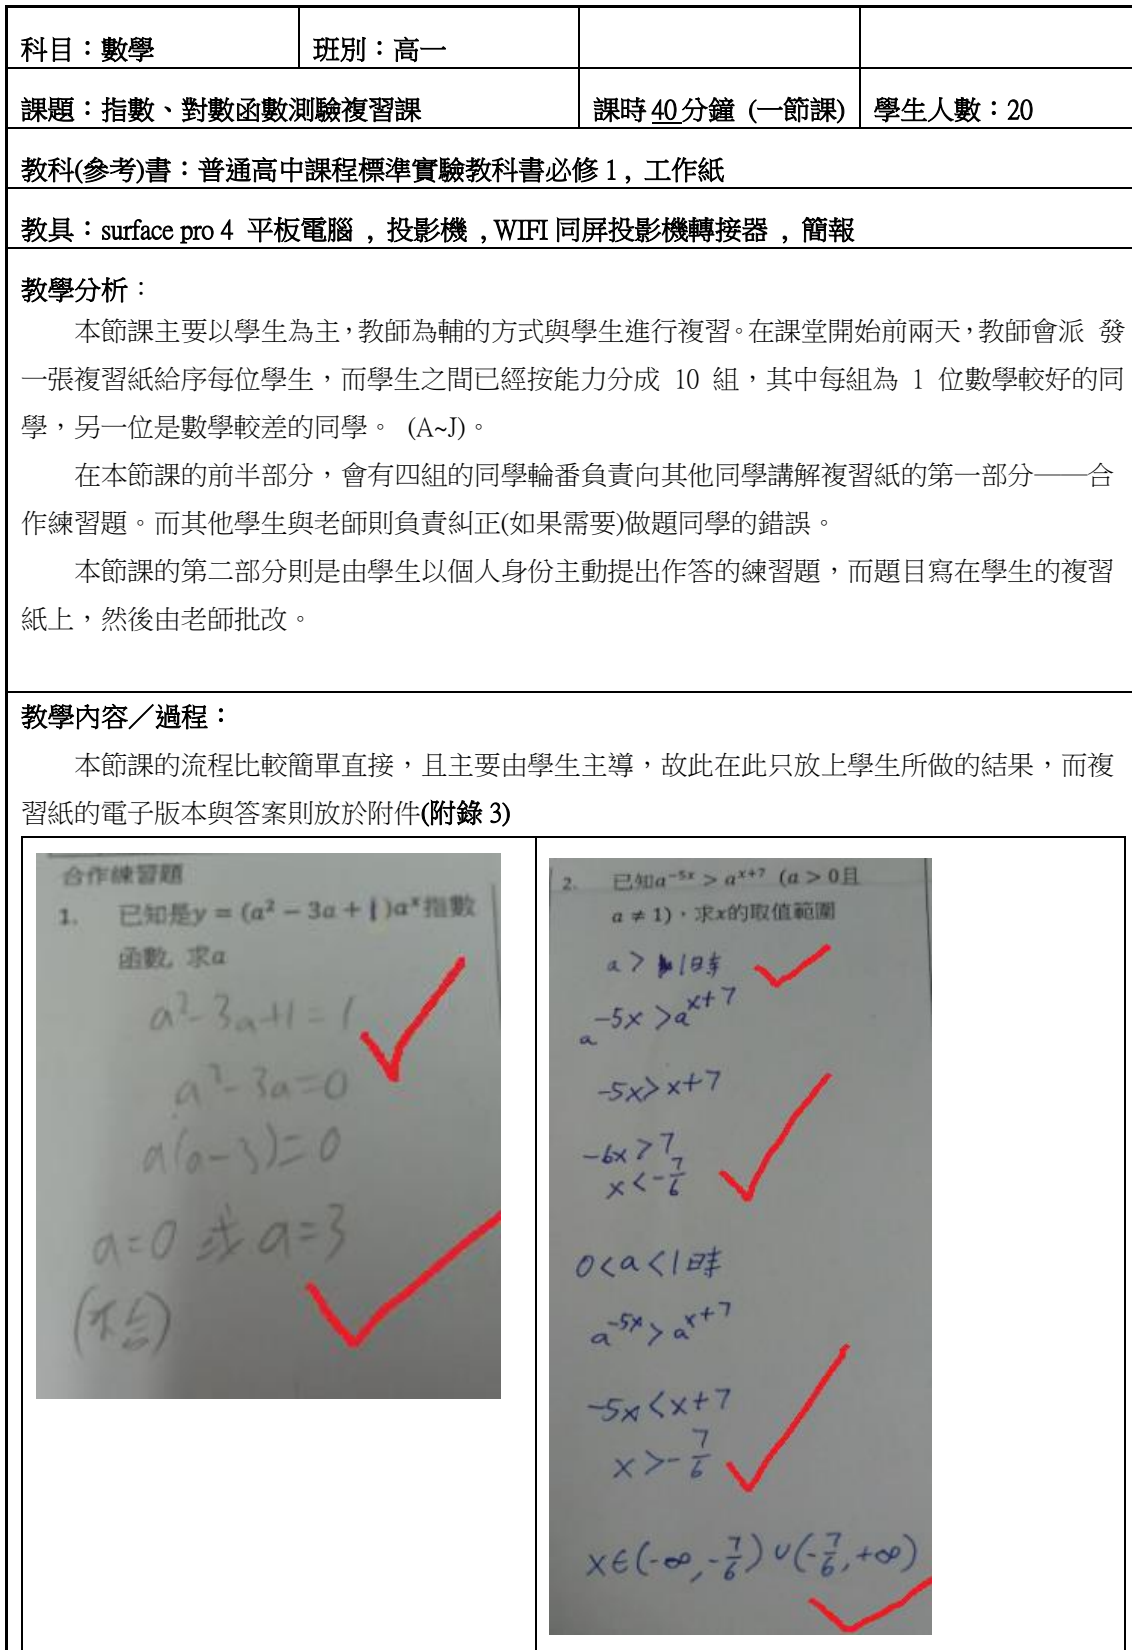 科目：數學 班別：高一
課題：指數、對數函數測驗複習課 課時 40 分鐘 (一節課) 學生人數：20
教科(參考)書：普通高中課程標準實驗教科書必修 1 , 工作紙
教具：surface pro 4 平板電腦 , 投影機 , WIFI 同屏投影機轉接器 , 簡報
教學分析：
本節課主要以學生為主，教師為輔的方式與學生進行複習。在課堂開始前兩天，教師會派 發
一張複習紙給序每位學生，而學生之間已經按能力分成 10 組，其中每組為 1 位數學較好的同
學，另一位是數學較差的同學。 (A~J)。
在本節課的前半部分，會有四組的同學輪番負責向其他同學講解複習紙的第一部分──合
作練習題。而其他學生與老師則負責糾正(如果需要)做題同學的錯誤。
本節課的第二部分則是由學生以個人身份主動提出作答的練習題，而題目寫在學生的複習
紙上，然後由老師批改。
教學內容／過程：
本節課的流程比較簡單直接，且主要由學生主導，故此在此只放上學生所做的結果，而複
習紙的電子版本與答案則放於附件(附錄 3)
合作練習題
1. 已知是y = (a² − 3a + 1)aˣ指數
函數, 求a
a²-3a+1=1
a²-3a=0
a(a-3)=0
a=0 或 a=3
(不合)
2. 已知a⁻⁵ˣ > aˣ⁺⁷ (a > 0且
a ≠ 1)，求x的取值範圍
a > 1時
a⁻⁵ˣ > aˣ⁺⁷
-5x > x+7
-6x > 7
x < -7/6
0<a<1時
a⁻⁵ˣ > aˣ⁺⁷
-5x < x+7
x > -7/6
x∈(-∞, -7/6)∪(-7/6, +∞)